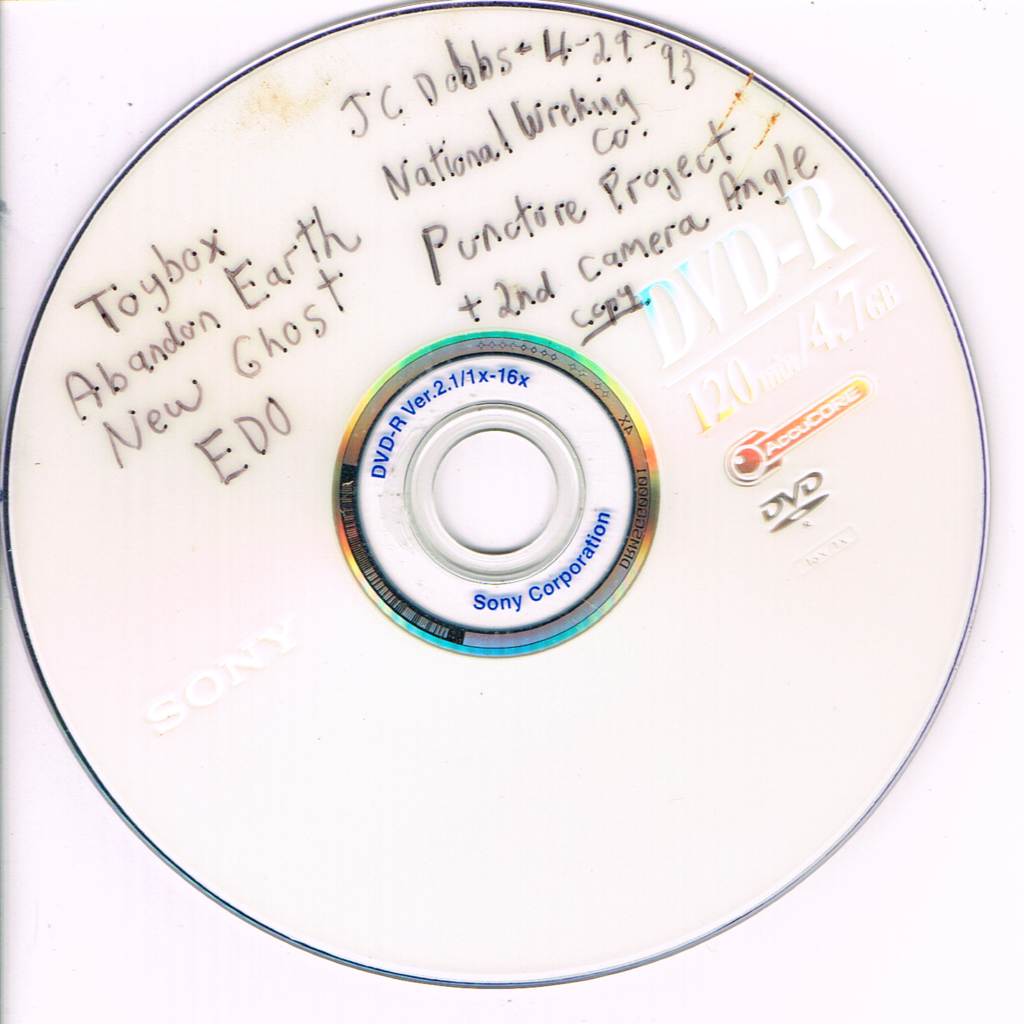 JC Dobbs - 4-29-93
National Wreking
Co.
Puncture Project
+ 2nd camera Angle
copy.
Toybox
Abandon Earth
New Ghost
EDO
DVD-R
120min/4.7GB
AccuCORE
DVD
R
16x 1x
DVD-R Ver.2.1/1x-16x
Sony Corporation
SONY